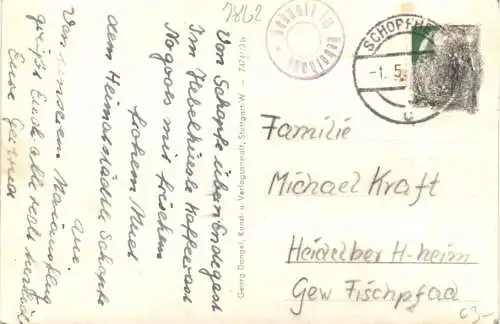 7862
Von Schopfe über Endegast
Im Hebelhüsle Kaffeerast
No goots mit frischem
frohem Muet
dem Heimatstädtle Schopfe
zue
Von unserem Maiausflug
grüßt Euch alle recht herzlich
Eure Gertrud
Georg Dengel, Kunst- u. Verlagsanstalt, Stuttgart-W.
Hebelhof
SCHOPFHE
-1.5.
c
Familie
Michael Kraft
Heidelber H-heim
Gew Fischpfad
63-